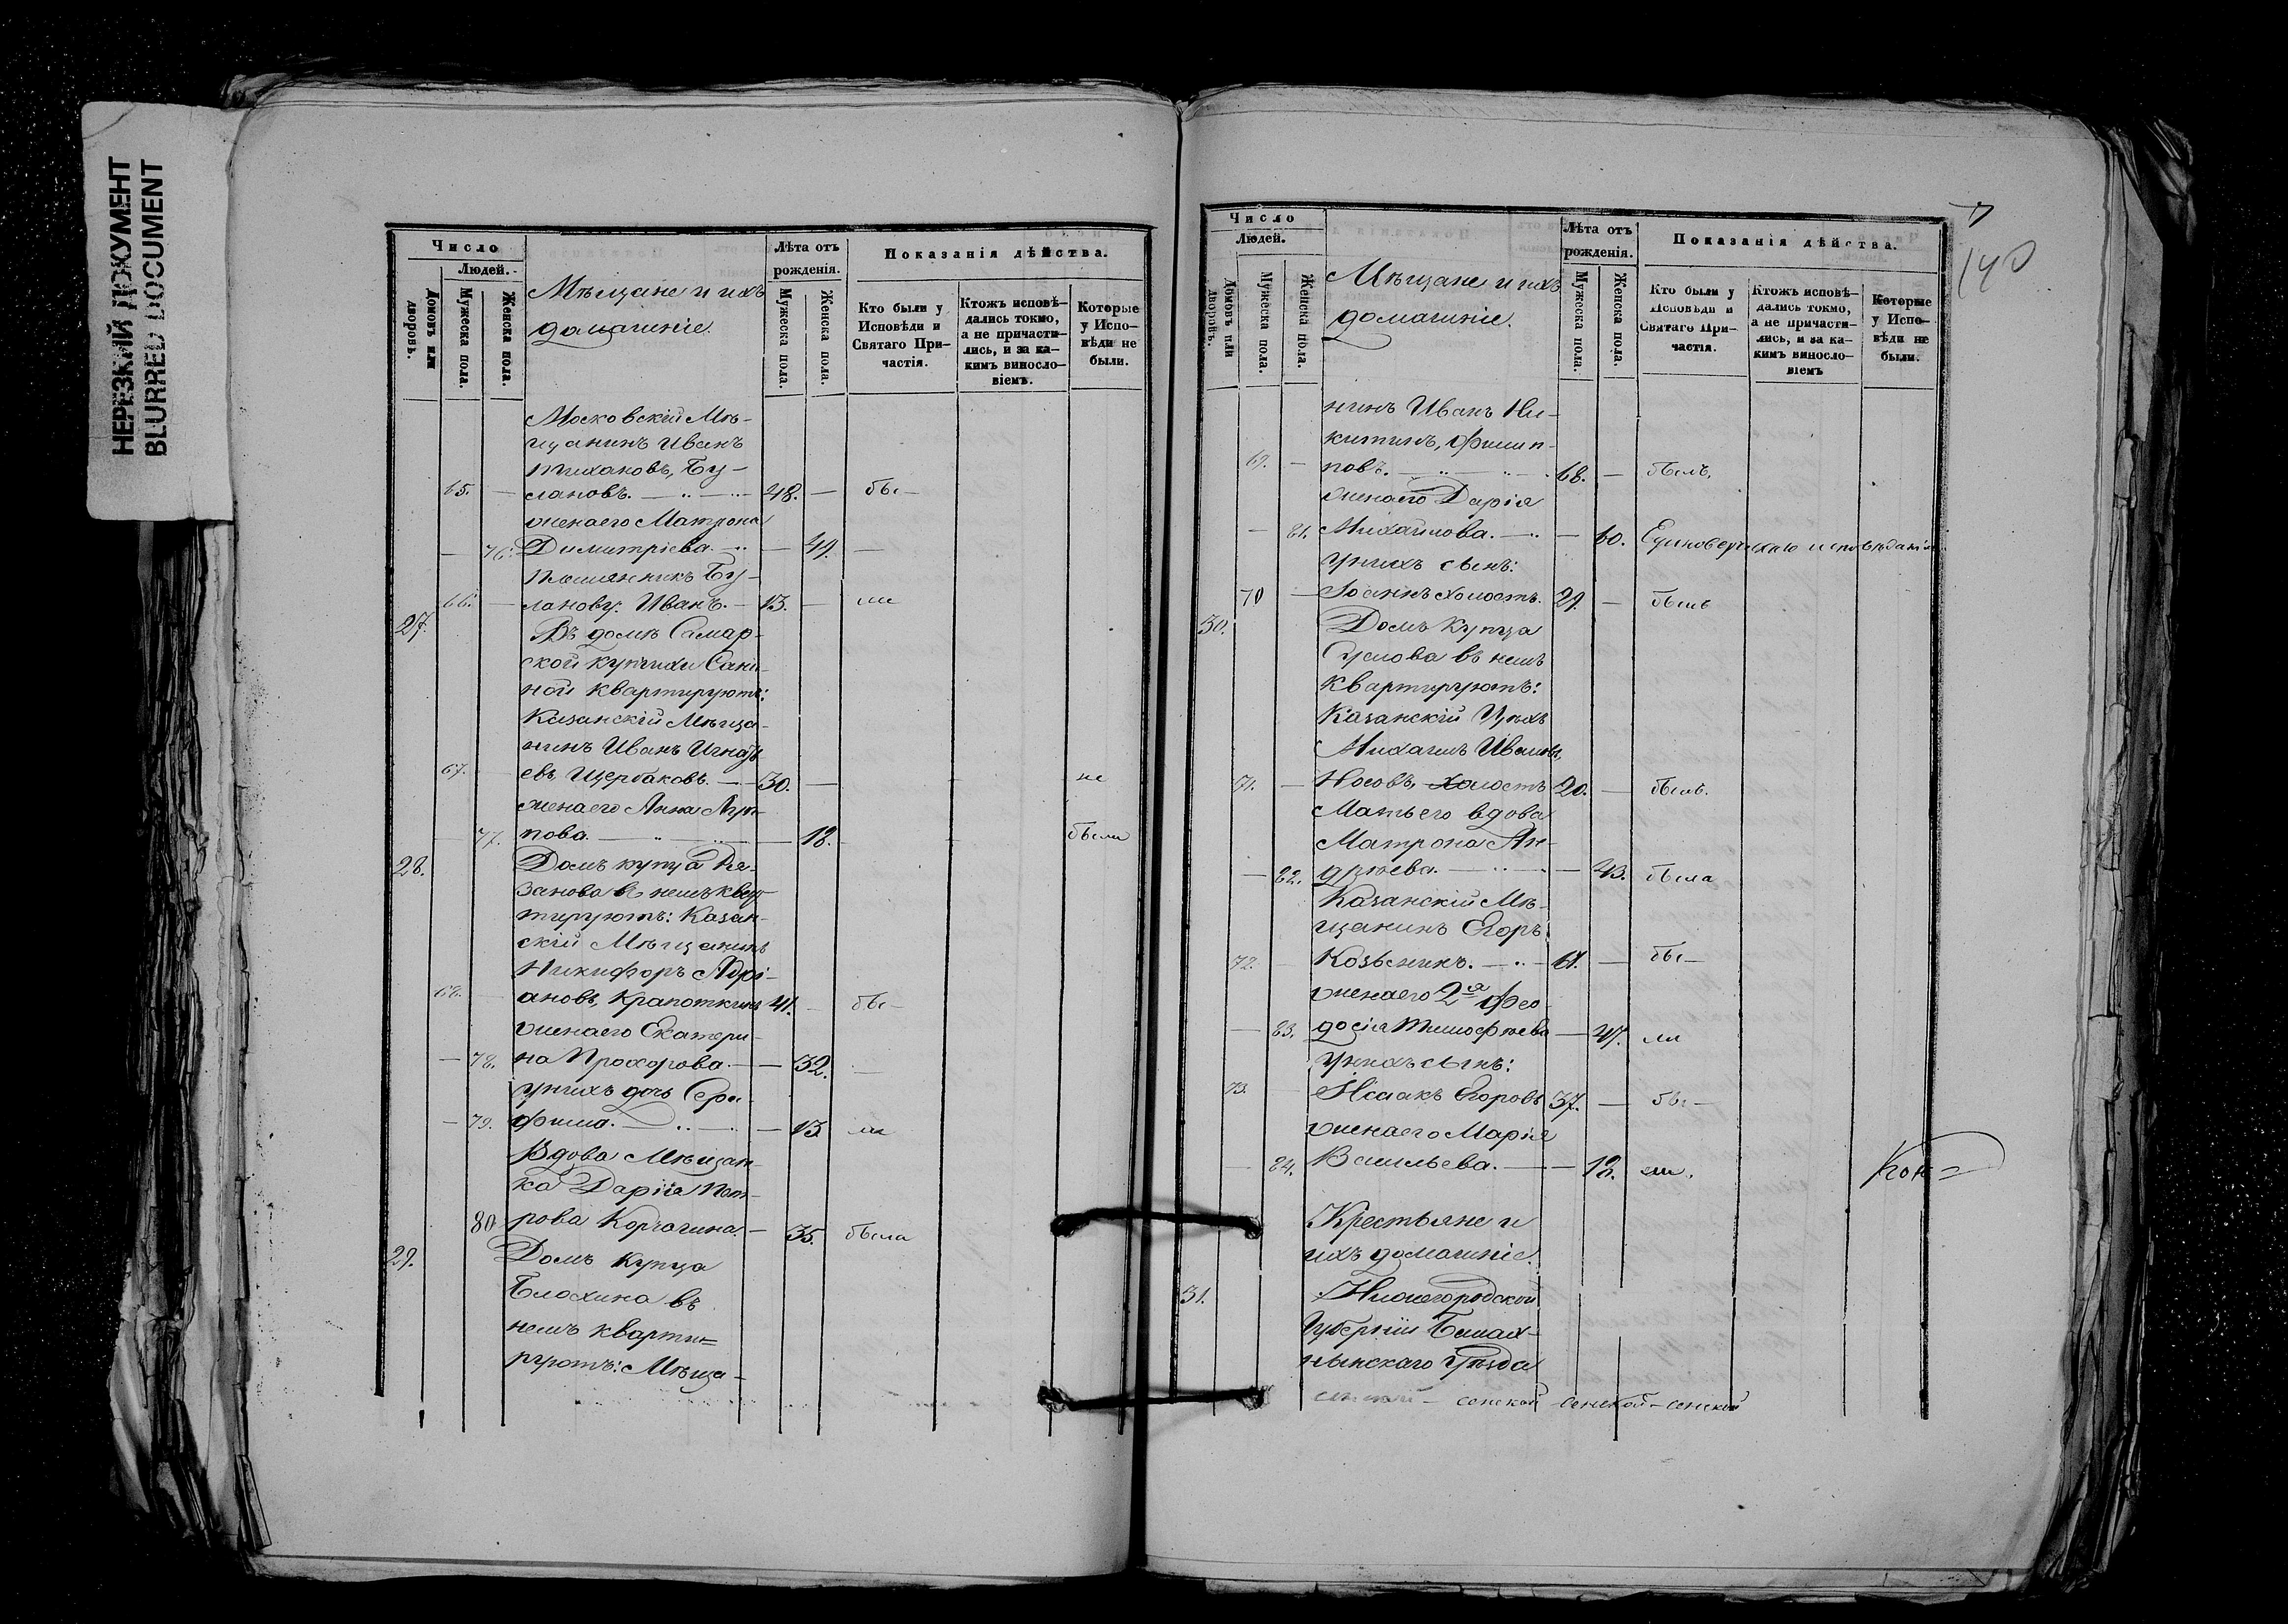 НЕРЕЗКИЙ ДОКУМЕНТ
BLURRED DOCUMENT
Число
Людей.
Домовъ или дворовъ.
Мужеска пола.
Женска пола.
Мѣщане и ихъ
домашніе.
Лѣта отъ рожденія.
Мужеска пола.
Женска пола.
Показанія дѣйства.
Кто были у Исповѣди и Святаго Причастія.
Ктожъ исповѣдались токмо, а не причастились, и за какимъ винословіемъ.
Которые у Исповѣди не были.
Московскій Мѣ-
щанинъ Иванъ
Тихановъ, Бу-
65. — слановъ. — 48. — бы —
жена его Матрона
— 76. Димитріева. — 49. —
племянникъ Бу-
66. — ланову. Иванъ. — 13. — ли
27. Въ домѣ Самар-
ской купчихи Сани-
ной квартируютъ:
Казанскій Мѣща-
нинъ Иванъ Игнатъ
67. — евъ, Щербаковъ. — 30. — не
жена его Анна Агап-
— 77. пова. — 18. были
28. Домъ купца Ря-
занова въ немъ квар-
тируютъ: Казан-
скій Мѣщанинъ
Никифоръ Адрі-
68. — ановъ, Крапоткинъ 41. — бы —
жена его Екатери-
— 78. на Прохорова. — 32. —
у нихъ дочь Сера-
— 79. фима. — 13 ли
Вдова Мѣщан-
ка Дарія Пет-
80 рова Корчагина. — 35. была
29. Домъ Купца
Блохина въ
немъ кварти=
руютъ: Мѣща-
140
Число
Людей.
Домовъ или дворовъ.
Мужеска пола.
Женска пола.
Мѣщане и ихъ
домашніе.
Лѣта отъ рожденія.
Мужеска пола.
Женска пола.
Показанія дѣйства.
Кто были у Исповѣди и Святаго Причастія.
Ктожъ исповѣдались токмо, а не причастились, и за какимъ винословіемъ
Которые у Исповѣди не были.
нинъ Иванъ Ни-
китинъ, Филип-
69. — повъ. — 68. — былъ.
жена его Дарія
— 81. Михайлова. — 60. Единоверческаго исповѣданія
у нихъ сынъ:
70 — Іоаннъ холостъ. 29. — былъ
30. Домъ Купца
Суслова въ немъ
квартируютъ:
Казанскій Цѣхъ
Михаилъ Ивановъ,
71. — Носовъ, холостъ 20. — былъ.
Мать его вдова
Матрона Ан-
— 82. дрѣева. — 43. была
Казанскій Мѣ-
щанинъ Егоръ
72. — — 61. — бы —
жена его 2я Фео-
— 83. досія Тимофѣева — 47. ли
у нихъ сынъ:
73. — Исаакъ Егоровъ 37. — бы —
жена его Марія
— 84. Васильева. — 18. ли.
Кон=
Крестьяне и
ихъ домашніе.
31. Нижегородской
Губерніи Балах-
нинскаго Уѣзда